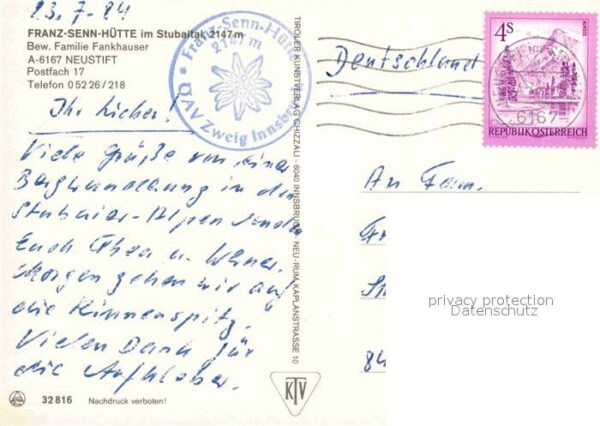 23.7.84
FRANZ-SENN-HÜTTE im Stubaital, 2147 m
Bew. Familie Fankhauser
A-6167 NEUSTIFT
Postfach 17
Telefon 0 52 26 / 218
Franz-Senn-Hütte
2147 m
ÖAV Zweig Innsbruck
Ihr Lieben!
Viele Grüße von einer
Bergwanderung in den
Stubaier-Alpen senden
Euch Thea u. Werner.
Morgen gehen wir auf
die Rinnenspitz.
Vielen Dank für
die
32816 Nachdruck verboten!
TIROLER KUNSTVERLAG CHIZZALI · 6040 INNSBRUCK · NEU-RUM, KAPLANSTRASSE 10
KTV
Deutschland
4S
ALMSEE
REPUBLIK ÖSTERREICH
6167
An Fam.
84
privacy protection
Datenschutz